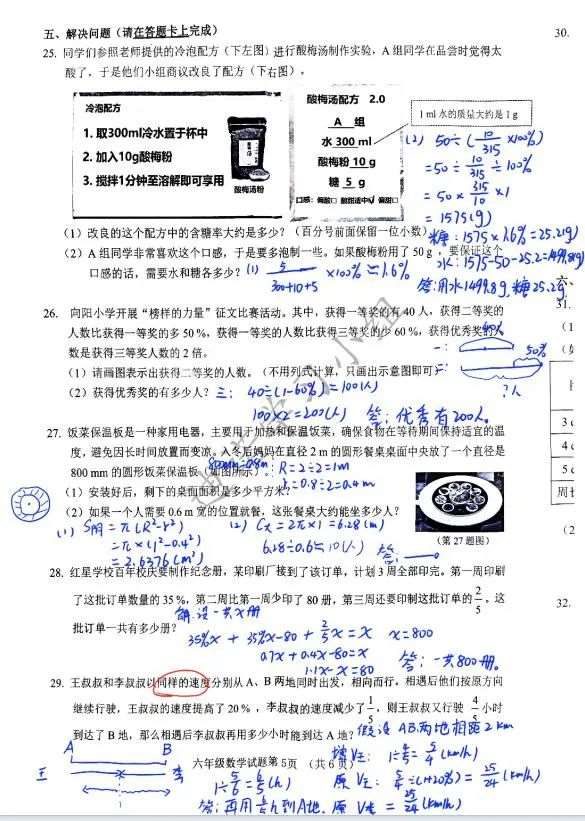 五、解决问题（请在答题卡上完成）
30.
25. 同学们参照老师提供的冷泡配方（下左图）进行酸梅汤制作实验，A组同学在品尝时觉得太
酸了，于是他们小组商议改良了配方（下右图）。
冷泡配方
1. 取300ml冷水置于杯中
2. 加入10g酸梅粉
3. 搅拌1分钟至溶解即可享用
酸梅汤粉
酸梅汤配方 2.0
A 组
水 300 ml
酸梅粉 10 g
糖 5 g
口感：偏酸□ 酸甜适中☑ 偏甜□
1 ml 水的质量大约是 1 g
(2) 50÷(10/315×100%)
=50÷10/315÷100%
=50×315/10×1
=1575(g)
（1）改良的这个配方中的含糖率大约是多少？（百分号前面保留一位小数）
糖：1575×1.6%=25.2(g)
（2）A组同学非常喜欢这个口感，于是要多泡制一些。如果酸梅粉用了50 g，要保证这个
口感的话，需要水和糖各多少？
水：1575-50-25.2=1499.8(g)
(1) 5/300+10+5 ×100%≈1.6%
答：用水1499.8g, 糖25.2g
六、
31.
26. 向阳小学开展“榜样的力量”征文比赛活动。其中，获得一等奖的有40人，获得二等奖的
人数比获得一等奖的多50%，获得一等奖的人数比获得三等奖的少60%，获得优秀奖的人
数是获得三等奖人数的2倍。
一：
40人
二：
50%
?人
（1）请画图表示出获得二等奖的人数。（不用列式计算，只画出示意图即可）
（2）获得优秀奖的有多少人？
三：40÷(1-60%)=100(人)
100×2=200(人) 答：优秀有200人。
27. 饭菜保温板是一种家用电器，主要用于加热和保温饭菜，确保食物在等待期间保持适宜的温
度，避免因长时间放置而变凉。入冬后妈妈在直径2 m的圆形餐桌桌面中央放了一个直径是
800mm=0.8m
800 mm的圆形饭菜保温板（如图所示）。
R=2÷2=1m
r=0.8÷2=0.4m
（1）安装好后，剩下的桌面面积是多少平方米？
（2）如果一个人需要0.6 m宽的位置就餐，这张餐桌大约能坐多少人？
(1) S阴=π(R²-r²)
=π×(1²-0.4²)
=2.6376(m²)
(2) C大=2π×1=6.28(m)
6.28÷0.6≈10(人)
答：
（第27题图）
28. 红星学校百年校庆要制作纪念册，某印刷厂接到了该订单，计划3周全部印完。第一周印刷
了这批订单数量的35%，第二周比第一周少印了80册，第三周还要印制这批订单的2/5，这
批订单一共有多少册？
解：设一共x册
35%x + 35%x-80 + 2/5x = x
0.7x+0.4x-80=x
1.1x-x=80
x=800
答：一共800册。
32.
29. 王叔叔和李叔叔以同样的速度分别从A、B两地同时出发，相向而行。相遇后他们按原方向
继续行驶，王叔叔的速度提高了20%，李叔叔的速度减少了1/5，则王叔叔又行驶4/5小时
到达了B地，那么相遇后李叔叔再用多少小时能到达A地？
假设AB两地相距2km
A
B
王
李
V王：1÷4/5=5/4(km/h)
原V王：5/4÷(1+20%)=25/24(km/h)
原V李=25/24(km/h)
1÷5/6=6/5(h)
答：再用6/5h到A地.
六年级数学试题第5页（共6页）